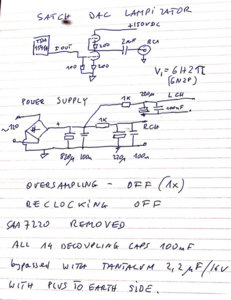 SATCH DAC LAMPIZATOR
+150VDC
TDA
1541A
I OUT
200
2mF
RCA
100
200
V₁ = 6H2П
(6N2P)
POWER SUPPLY
1k
L CH
220µ
100m
~220
+
1k
R CH
820µ
100m
220µ
100m
OVERSAMPLING - OFF (1x)
RECLOCKING OFF
SAA 7220 REMOVED
ALL 14 DECOUPLING CAPS 100mF
bypassed WITH TANTALUM 2,2µF/16V
WITH PLUS TO EARTH SIDE.